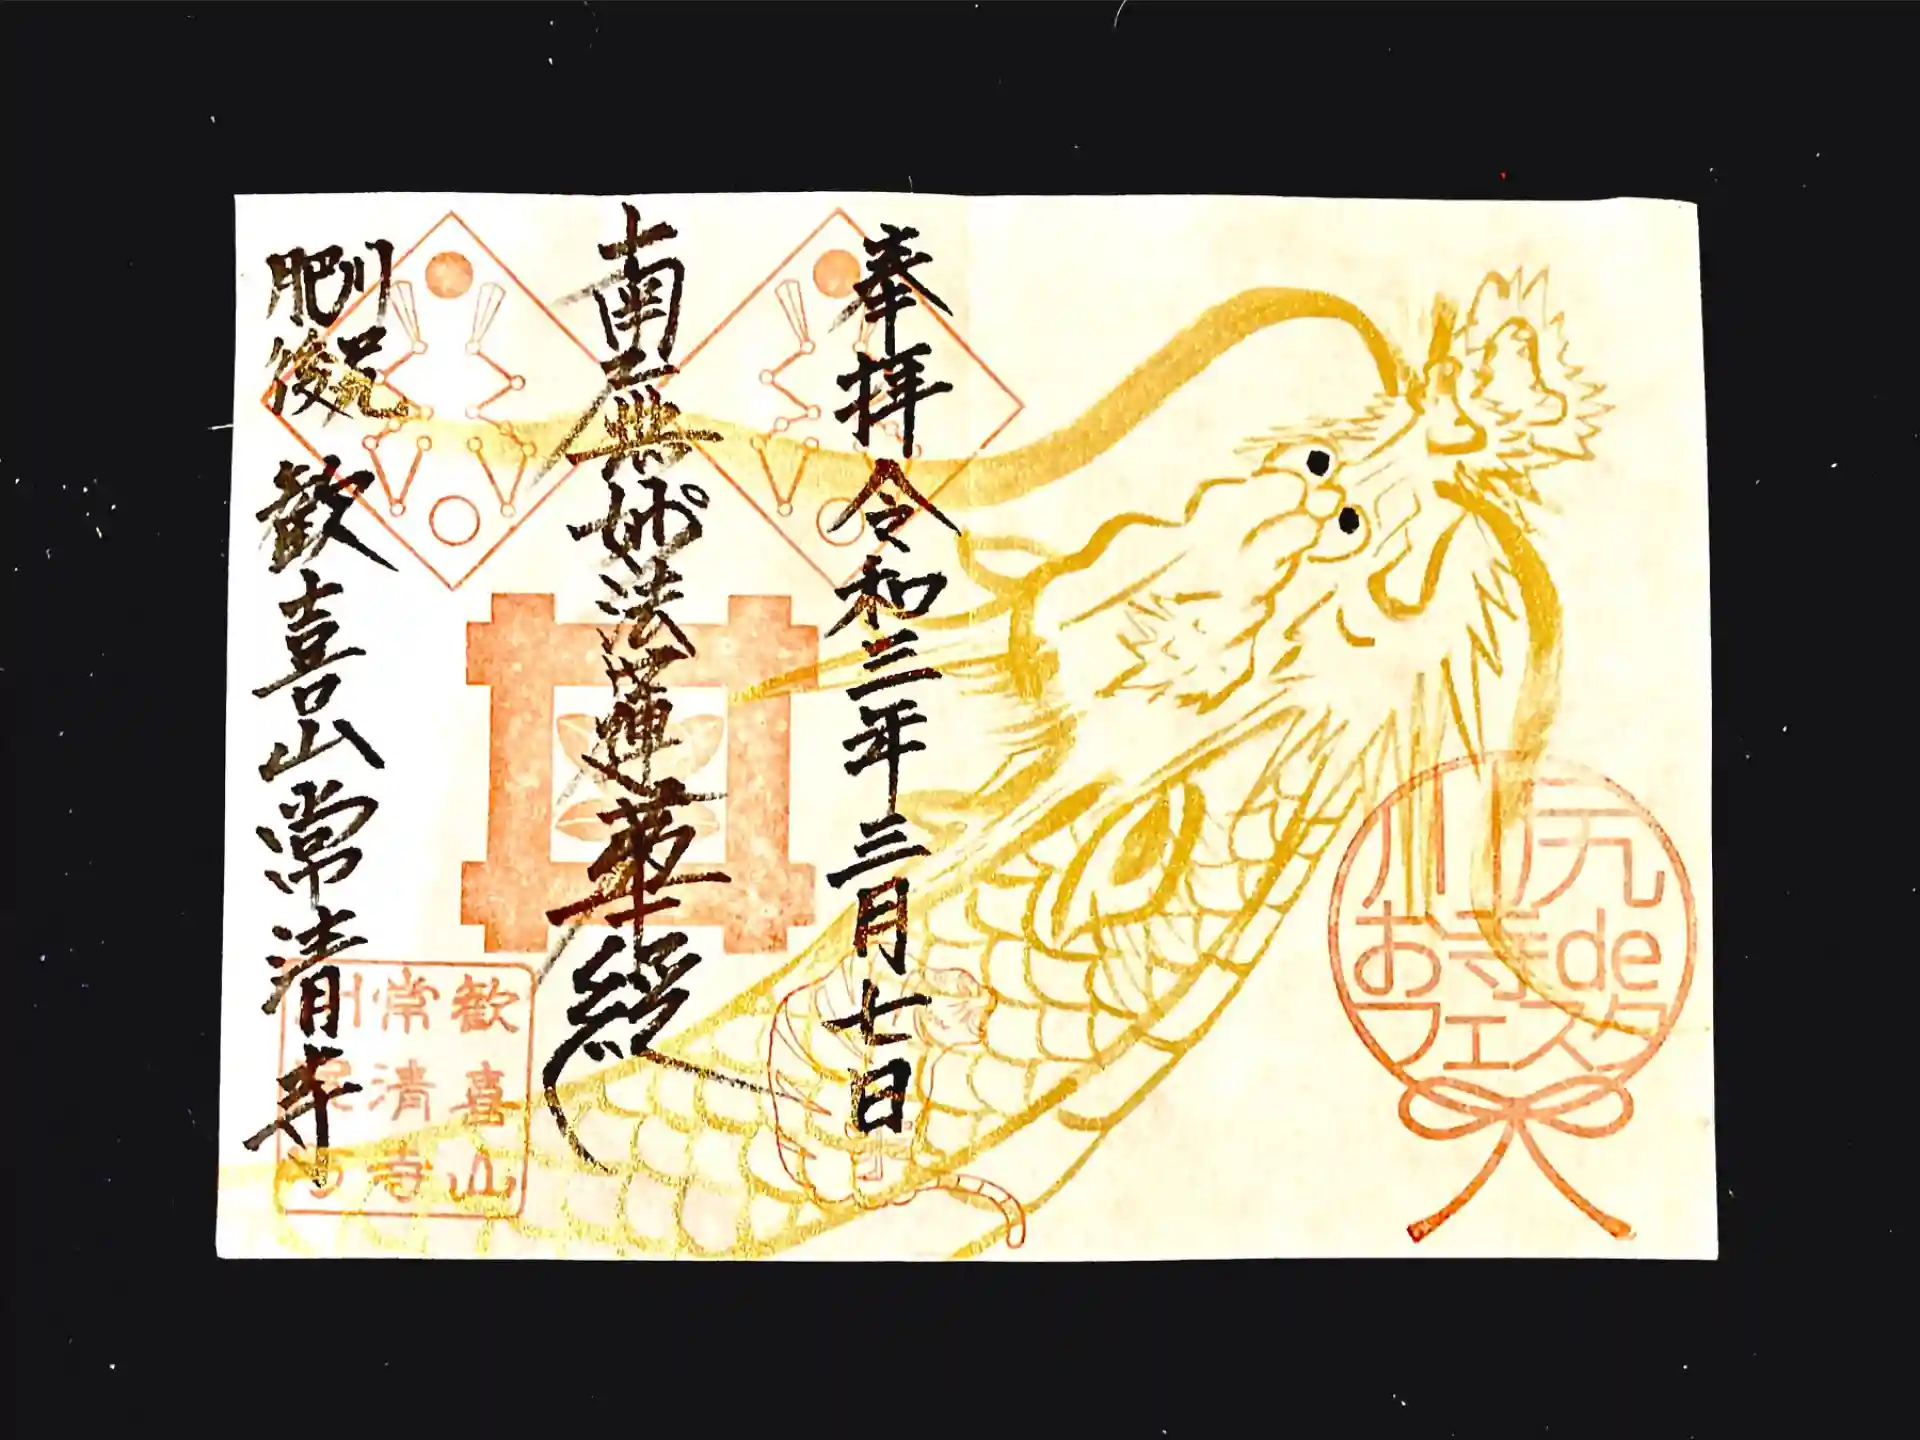 奉拝 令和三年 三月七日
南無妙法蓮華経
肥後川尻 歓喜山常清寺
歓喜山
常清寺
川尻
お寺de
フェスタ